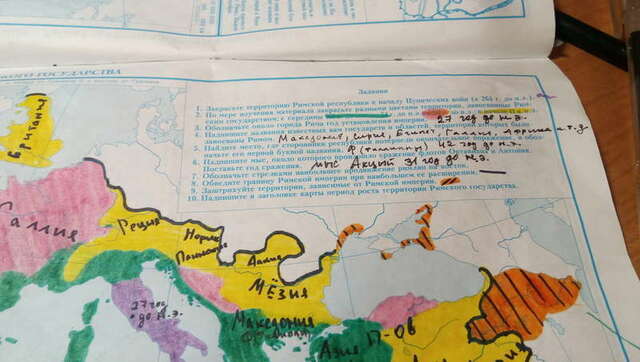 КОГО ГОСУДАРСТВА
Задания
1. Закрасьте территорию Римской республики к началу Пунических войн (к 264 г. до н.э.).
2. По мере изучения материала закрасьте разными цветами территории, завоеванные Рим-
ским государством: с середины до н.э.
3. Обозначьте около города Рима год установления 27 год до н.э.
4. Надпишите названия известных вам государств и областей, территории которых были
завоеваны Римом. Македония, Сирия, Египет, Галлия, Африка и т.д
5. Найдите место, где сторонники республики потерпели окончательное поражение, и обоз-
начьте его первой буквой названия. Ф (Филиппы) 42 год до н.э.
6. Надпишите мыс, около которого произошло сражение флотов Октавиана и Антония.
Поставьте год сражения. мыс Акций 31 год до н.э.
7. Обозначьте стрелками наибольшее продвижение римлян на восток.
8. Обведите границу Римской империи при наибольшем ее расширении.
9. Заштрихуйте территории, зависимые от Римской империи.
10. Надпишите в заголовке карты период роста территории Римского государства.
Британия
Галлия
Реция
Норик
Паннония
Дакия
МЁЗИЯ
27 год
до н.э.
Македония
Азия
П-ов